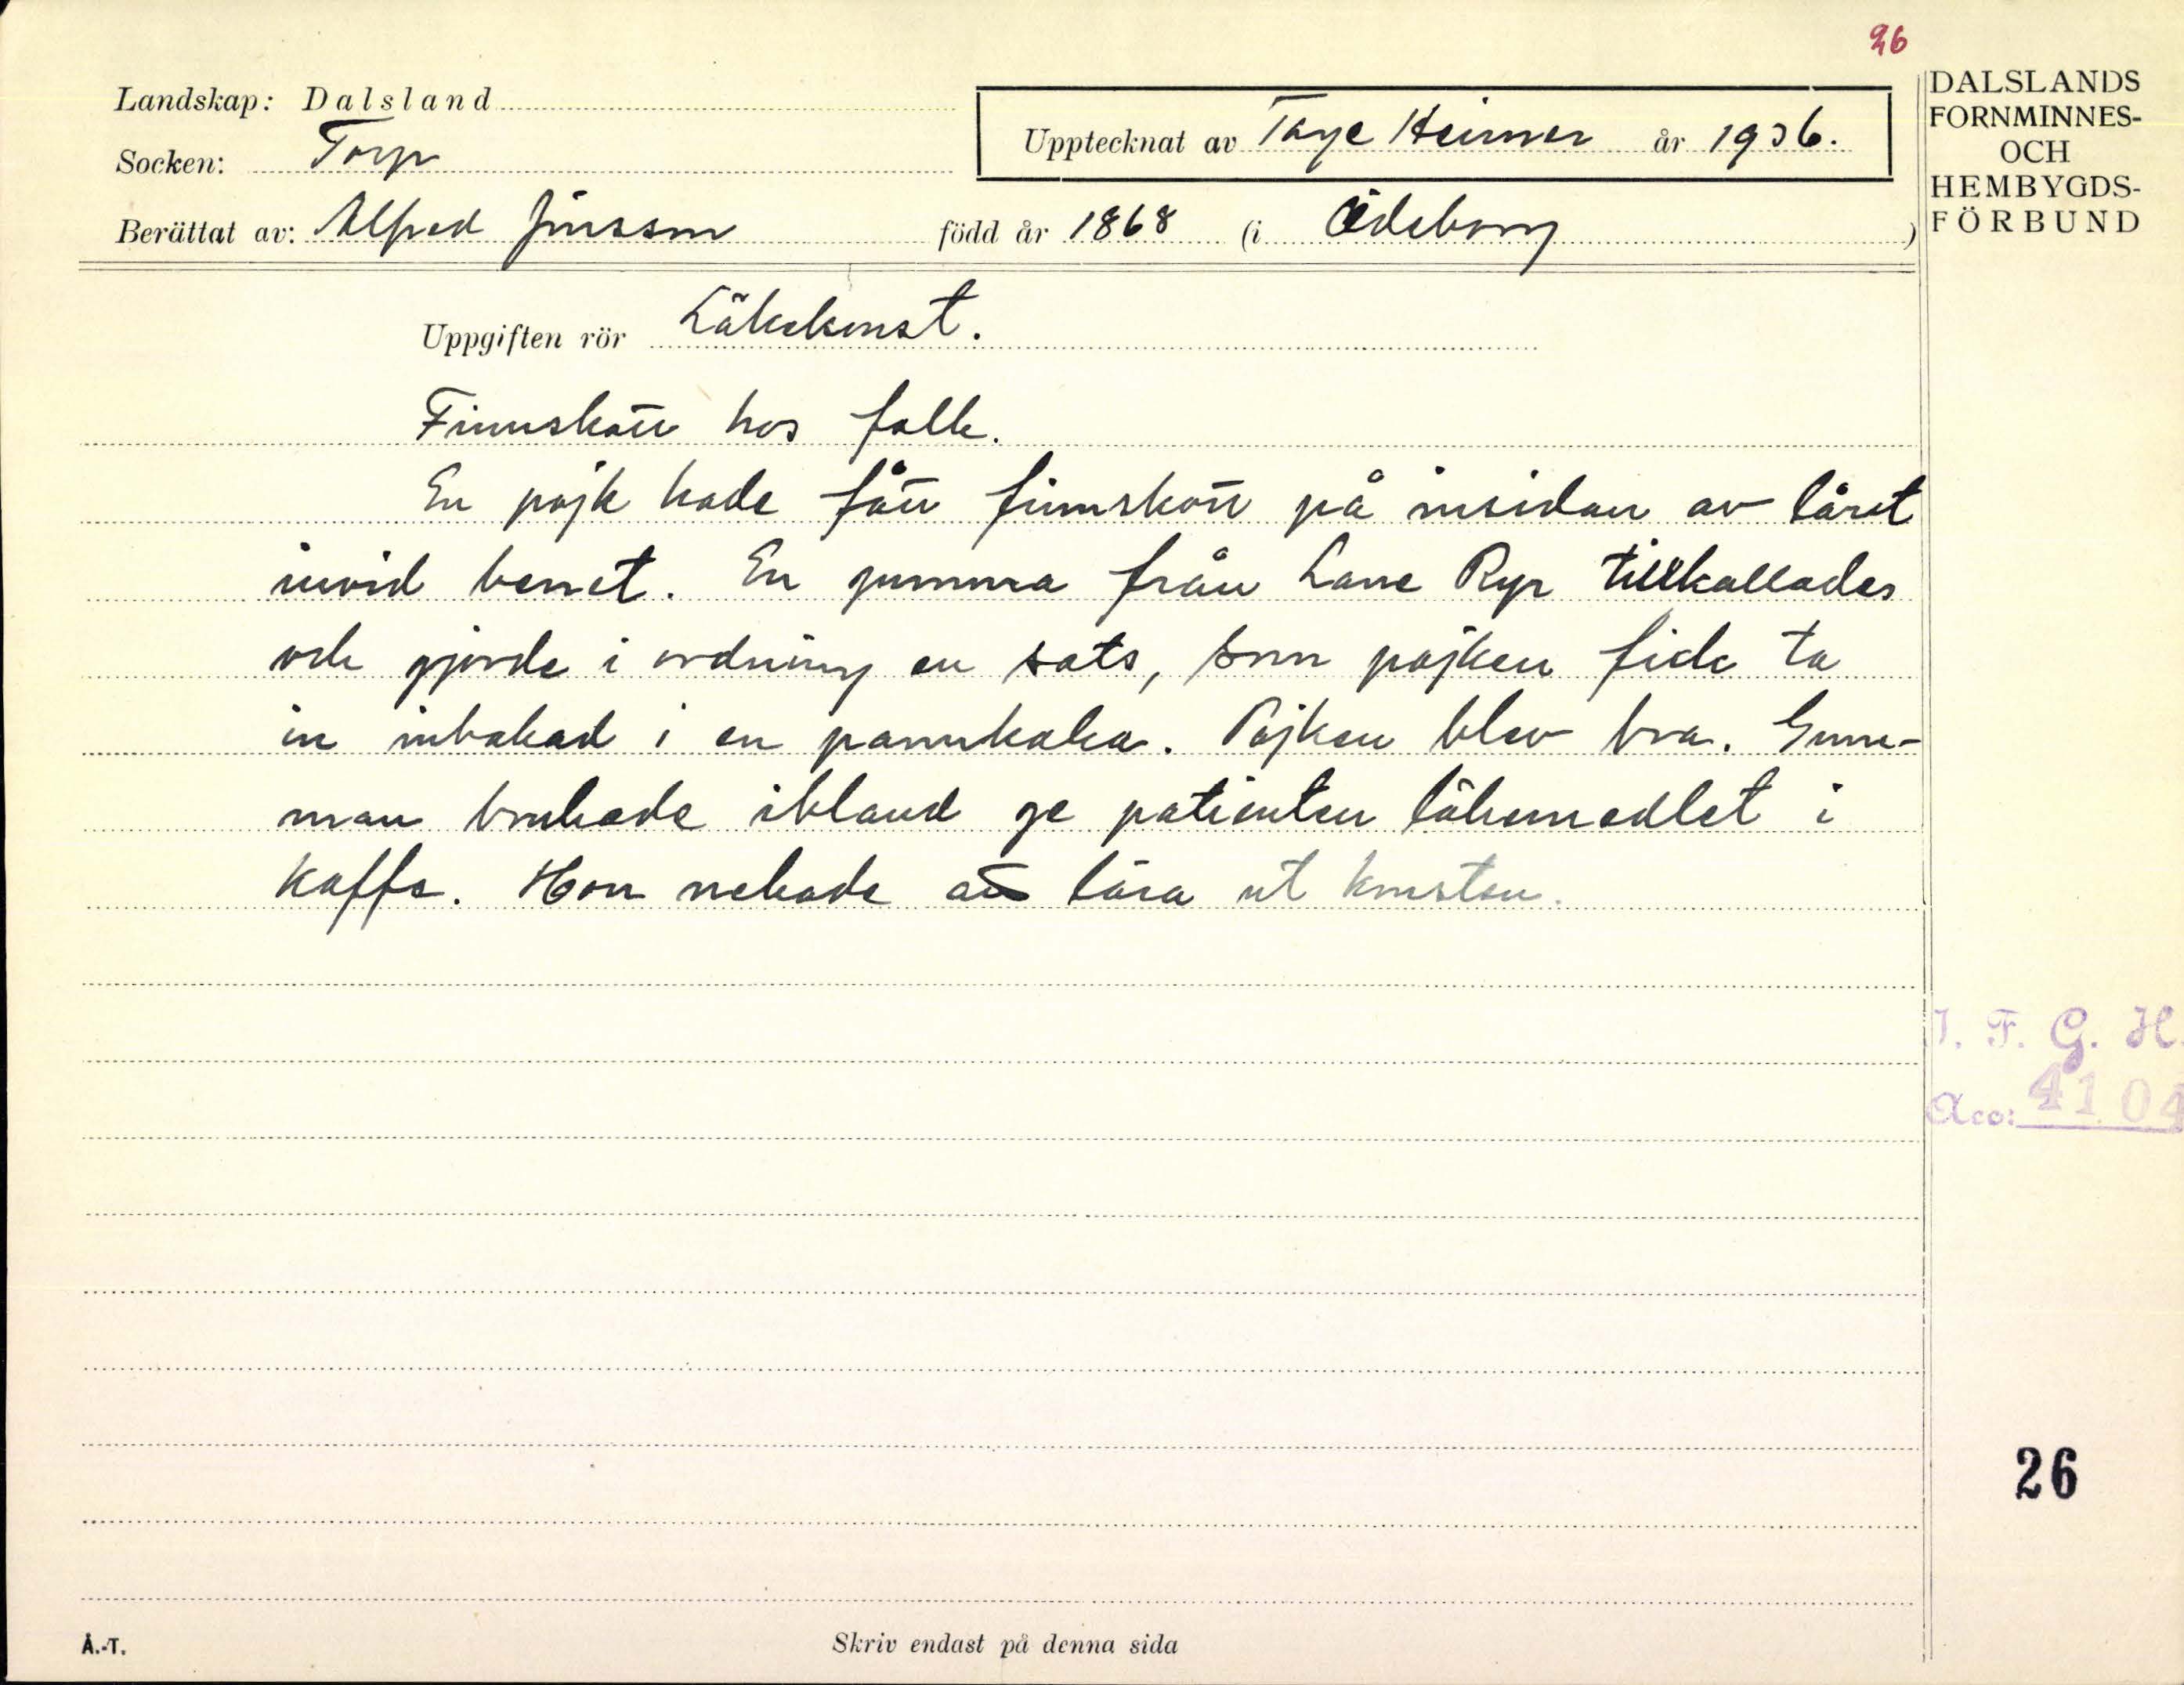 26
Landskap: Dalsland
Socken: Torp
Upptecknat av Tage Heimer år 1936.
Berättat av: Alfred Jonsson född år 1868 (i Ödeborg )
DALSLANDS
FORNMINNES-
OCH
HEMBYGDS-
FÖRBUND
Uppgiften rör Läkekonst.
Finnskott hos folk.
En pojk hade fått finnskott på insidan av låret
invid benet. En gumma från Lane Ryr tillkallades
och gjorde i ordning en sats, som pojken fick ta
in inbakad i en pannkaka. Pojken blev bra. Gum-
man brukade ibland ge patienten läkemedlet i
kaffe. Hon nekade att lära ut konsten.
I. F. G. H.
Acc: 4104
26
Å.-T.
Skriv endast på denna sida